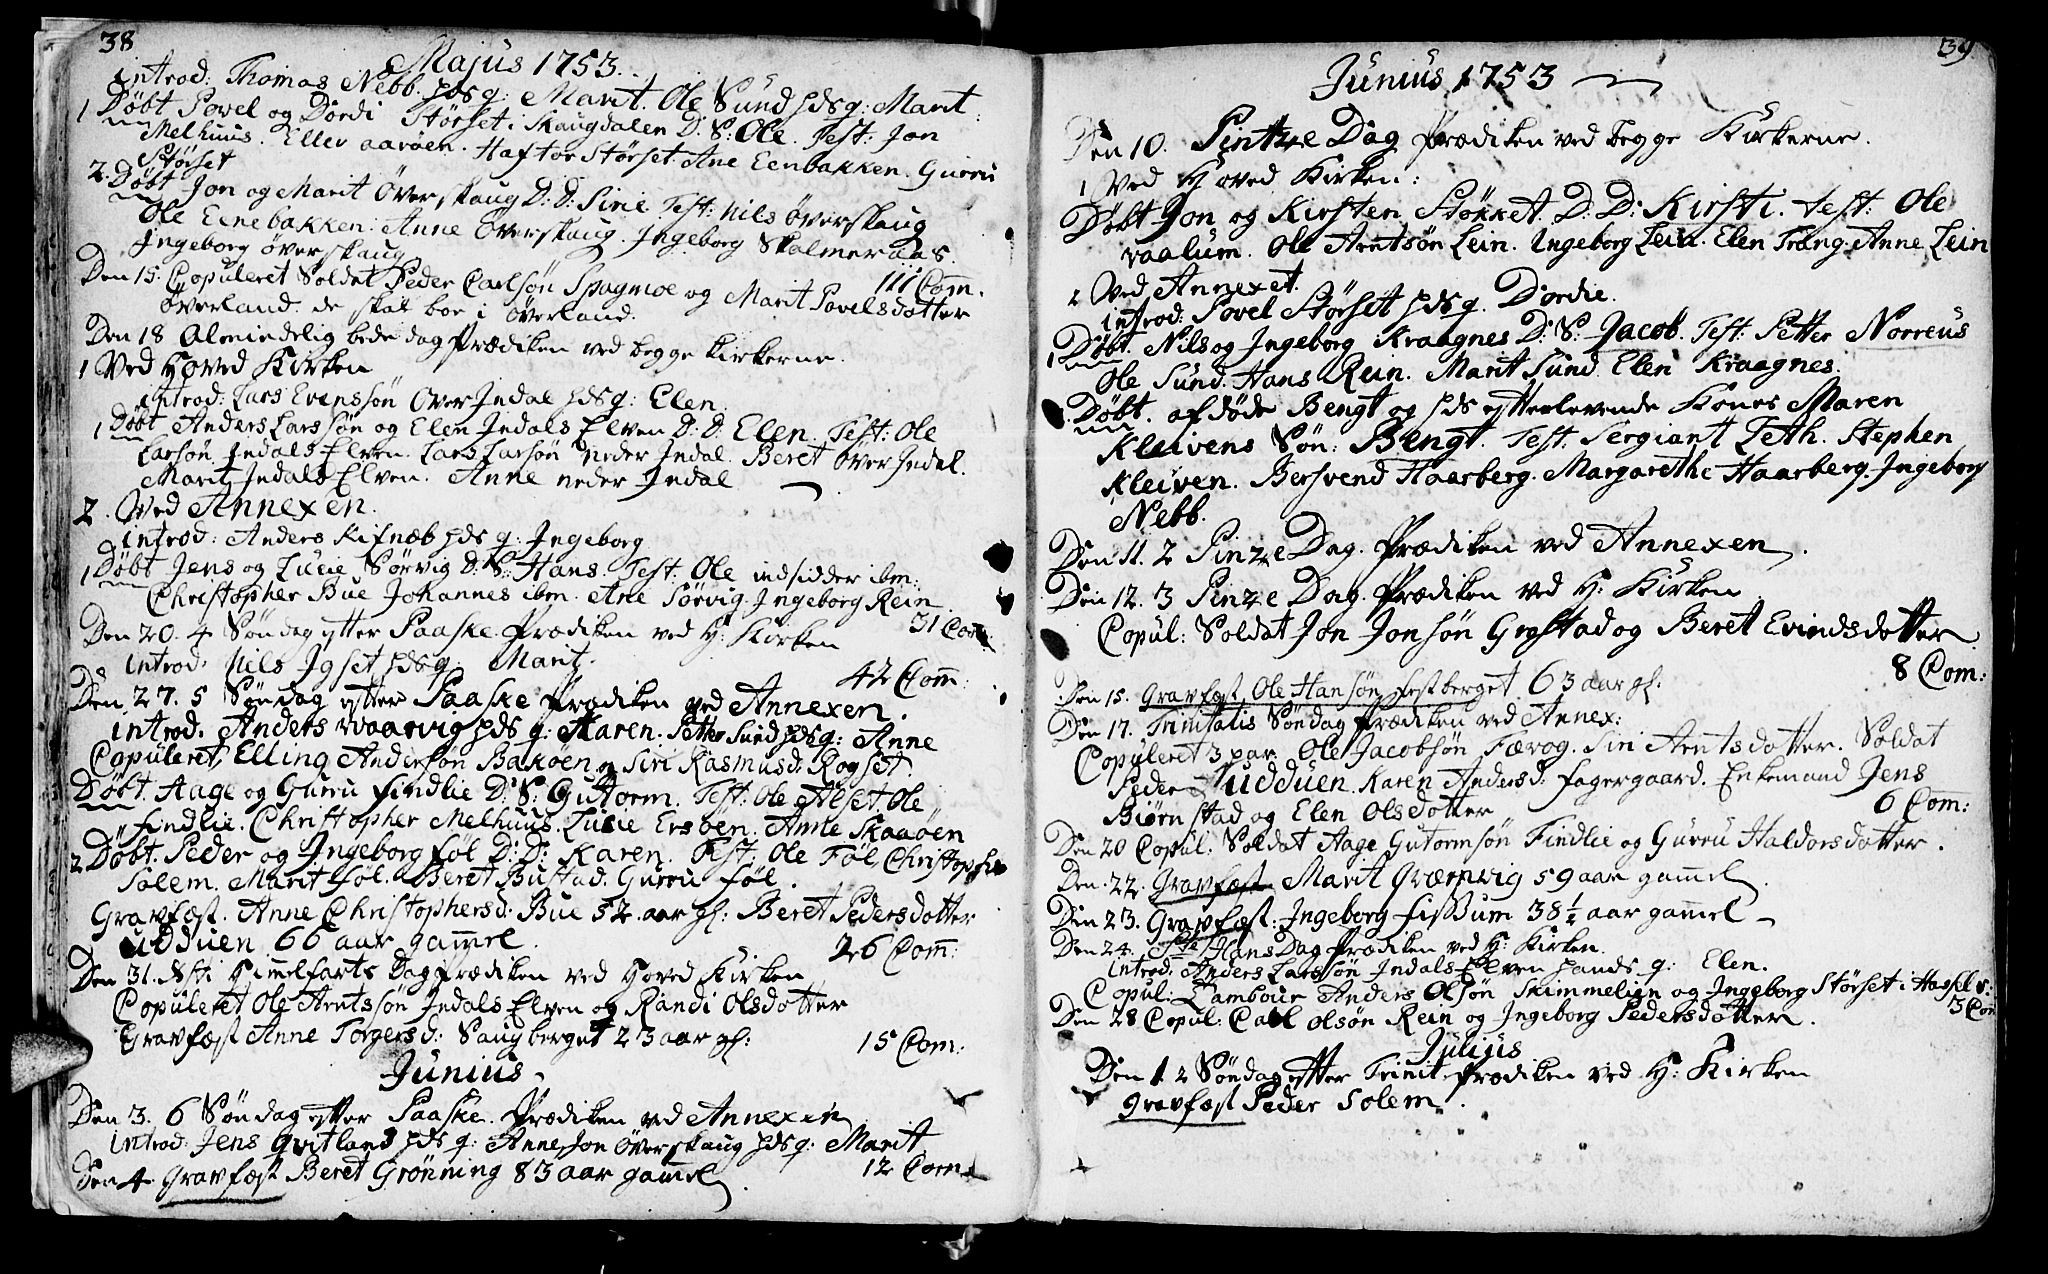 38
Majus 1753.
introd: Thomas Nebb. hds q: Marit. Ole Sund hds q: Marit.
1 Døbt Povel og Dordi Størset i Skaugdalen D: S: Ole. Test: Jon
Melhuus. Eller aarøen. Haftor Størset. Ane Eenbakken. Gurru
Størset
2. Døbt Jon og Marit Överskaug D: D: Sirie Test: Nils överskaug
Ole Eenebakken. Anne Överskaug. Ingeborg Skalmeraas.
Ingeborg överskaug
111 Com̄.
Den 15. Copuleret Soldat Peder Carlsøn Spagmoe og Marit Povelsdotter
överland. de skal boe i överland.
Den 18 Almindelig bededag Prædiken ved begge kirkerne.
1 Ved Hoved Kirken
introd: Lars Evensøn Over Indal hds q: Elen
1 Døbt Anders Larssøn og Elen Indals Elven D: D: Elen. Test: Ole
Larsøn Indals Elven. Lars Larsøn neder Indal. Beret över Indal.
Marit Indals Elven. Anne neder Indal
2. Ved Annexen.
introd: Anders Kifnæb hds q: Ingeborg
1 Døbt Jens og Lucie Sørvig D: S: Hans. Test: Ole indsidder ibm:
Christopher Bue Johannes ibm. Ane Sørvig. Ingeborg Rein.
31 Com:
Den 20. 4 Søndag efter Paaske Prædiken ved H: Kirken
introd: Nils Igset hds q: Marit.
42 Com̄:
Den 27. 5 Søndag efter Paaske Prædiken ved Annexen.
introd. Anders vaarvig hds q: Karen. Petter Sund hds q: Anne
Copuleret Elling Andersøn Bakøen og Siri Rasmusd: Rogset.
Døbt. Aage og Guru Findlie D: S: Gutorm. Test: Ole Alset. Ole
Findlie. Christopher Melhuus. Lucie Ersøen. Anne Skaaøen
2 Døbt. Peder og Ingeborg Føl D: D: Karen. Test: Ole Føl Christopher
Solem. Marit Føl. Beret Bustad. Gurru Føl.
Gravfæst. Anne Christophersd: Bue 52. aar gl: Beret Pedersdotter
udduen 66 aar gam̄el.
26 Com̄:
Den 31. Chri Him̄elfarts Dag Prædiken ved Hoved Kirken
Copuleret Ole Arntssøn Indals Elven og Randi Olsdotter
Gravfæst Anne Torgersd: Saugberget 23 aar gl:
15 Com:
Junius
Den 3. 6 Søndag efter Paaske. Prædiken ved Annexen
introd: Jens Qvitland hds q: Anne Jon överskaug hds q: Marit
12 Com:
Den 4. Gravfæst Beret Grønning 83 aar gam̄el.
39
Junius 1753
Den 10. Pintze Dag Prædiken ved begge Kirkerne.
1 Ved Hoved Kirken:
Døbt Jon og Kirsten Støkket. D: D: Kirsti. Test: Ole
vaalum. Ole Arntsøn Lein. Ingeborg Lein. Elen Træng. Anne Lein
2 Ved Annexet.
introd: Povel Størset hds q. Dordie.
1 Døbt. Nils og Ingeborg Kraagnes D: S: Jacob. Test: Petter Norreus
Ole Sund. Hans Rein. Marit Sund. Elen Kraagnes.
Døbt. afdøde Bengt og hds efterlevende Kones Maren
Kleivens Søn: Bengt. Test. Sergiant Leth. Stephen
Kleiven. Bersvend Haarberg. Margarethe Haarberg. Ingeborg
Nebb.
Den 11. 2 Pinze Dag. Prædiken ved Annexen.
Den 12. 3 Pinze Dag. Prædiken ved H: Kirken.
Copul: Soldat Jon Jonsøn Grøstad og Beret Evindsdotter
8 Com:
Den 15. Gravfæst Ole Hansøn Festberget 63 aar gl:
Den 17. Trinitatis Søndag Prædiken ved Annex:
Copuleret 3 par. Ole Jacobsøn Færog. Siri Arntsdotter. Soldat
Peder Udduen. Karen Andersd: Fagergaard. Enkemand Jens
Biørnstad og Elen Olsdotter
6 Com:
Den 20 Copul: Soldat Aage Gutormsøn Findlie og Gurru Haldorsdotter.
Den. 22. Gravfæst Marit Qværnvig 59 aar gam̄el.
Den 23. Gravfæst: Ingeborg Fissum 38½ aar gam̄el
Den 24. Ste Hans Dag Prædiken ved H: Kirken.
introd: Anders Larssøn Indals Elven hands q: Elen.
Copul: Tambour Anders Olsøn Skimmelien og Ingeborg Størset i
3 Com
Den 28 Copul: Carl Olsøn Rein og Ingeborg Pedersdotter.
Julius
Den 1 2 Søndag efter Trinit. Prædiken ved H: Kirken
Gravfæst Peder Solem.